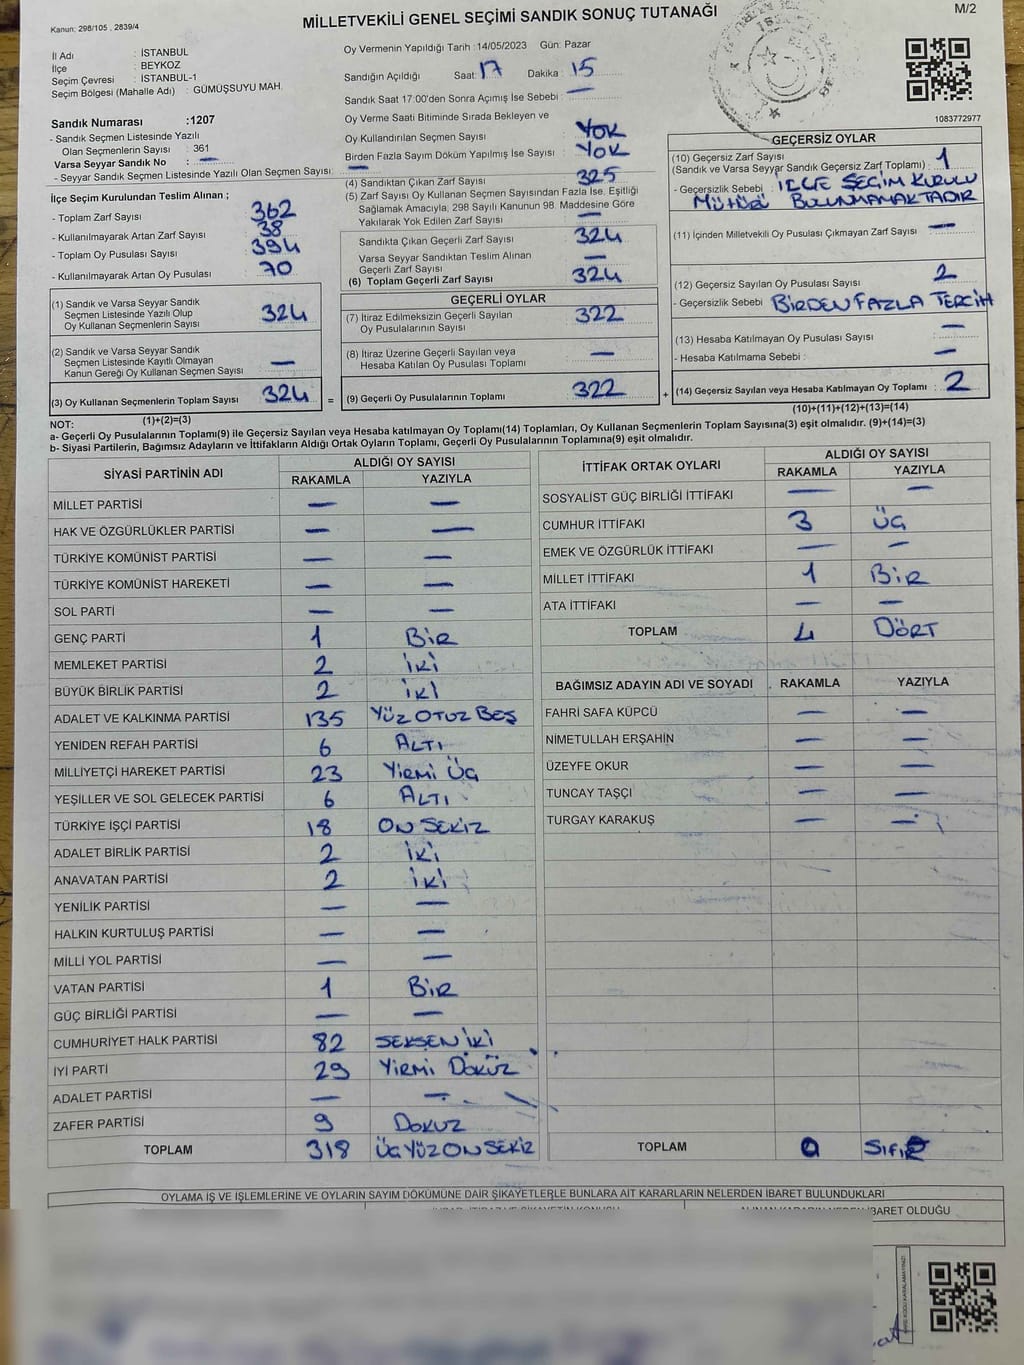 Kanun: 298/105 , 2839/4
MİLLETVEKİLİ GENEL SEÇİMİ SANDIK SONUÇ TUTANAĞI
M/2
İl Adı : İSTANBUL
İlçe : BEYKOZ
Seçim Çevresi : İSTANBUL-1
Seçim Bölgesi (Mahalle Adı) : GÜMÜŞSUYU MAH.
Oy Vermenin Yapıldığı Tarih : 14/05/2023 Gün: Pazar
Sandığın Açıldığı Saat: 17 Dakika : 15
Sandık Saat 17:00'den Sonra Açımış İse Sebebi : —
Oy Verme Saati Bitiminde Sırada Bekleyen ve
Oy Kullandırılan Seçmen Sayısı : YOK
Birden Fazla Sayım Döküm Yapılmış İse Sayısı : YOK
1083772977
Sandık Numarası :1207
- Sandık Seçmen Listesinde Yazılı
Olan Seçmenlerin Sayısı : 361
Varsa Seyyar Sandık No : —
- Seyyar Sandık Seçmen Listesinde Yazılı Olan Seçmen Sayısı: —
İlçe Seçim Kurulundan Teslim Alınan ;
- Toplam Zarf Sayısı : 362
- Kullanılmayarak Artan Zarf Sayısı : 38
- Toplam Oy Pusulası Sayısı : 394
- Kullanılmayarak Artan Oy Pusulası : 70
(1) Sandık ve Varsa Seyyar Sandık
Seçmen Listesinde Yazılı Olup
Oy Kullanan Seçmenlerin Sayısı : 324
(2) Sandık ve Varsa Seyyar Sandık
Seçmen Listesinde Kayıtlı Olmayan
Kanun Gereği Oy Kullanan Seçmen Sayısı : —
(3) Oy Kullanan Seçmenlerin Toplam Sayısı : 324
(1)+(2)=(3)
(4) Sandıktan Çıkan Zarf Sayısı : 325
(5) Zarf Sayısı Oy Kullanan Seçmen Sayısından Fazla İse, Eşitliği
Sağlamak Amacıyla, 298 Sayılı Kanunun 98. Maddesine Göre
Yakılarak Yok Edilen Zarf Sayısı : —
Sandıkta Çıkan Geçerli Zarf Sayısı : 324
Varsa Seyyar Sandıktan Teslim Alınan
Geçerli Zarf Sayısı : —
(6) Toplam Geçerli Zarf Sayısı : 324
GEÇERLİ OYLAR
(7) İtiraz Edilmeksizin Geçerli Sayılan
Oy Pusulalarının Sayısı : 322
(8) İtiraz Üzerine Geçerli Sayılan veya
Hesaba Katılan Oy Pusulası Toplamı : —
= (9) Geçerli Oy Pusulalarının Toplamı : 322
GEÇERSİZ OYLAR
(10) Geçersiz Zarf Sayısı
(Sandık ve Varsa Seyyar Sandık Geçersiz Zarf Toplamı) : 1
- Geçersizlik Sebebi : İLÇE SEÇİM KURULU
MÜHÜRÜ BULUNMAMAKTADIR
(11) İçinden Milletvekili Oy Pusulası Çıkmayan Zarf Sayısı : —
(12) Geçersiz Sayılan Oy Pusulası Sayısı : 2
- Geçersizlik Sebebi : BİRDEN FAZLA TERCİH
(13) Hesaba Katılmayan Oy Pusulası Sayısı : —
- Hesaba Katılmama Sebebi : —
+ (14) Geçersiz Sayılan veya Hesaba Katılmayan Oy Toplamı : 2
(10)+(11)+(12)+(13)=(14)
NOT:
a- Geçerli Oy Pusulalarının Toplamı(9) ile Geçersiz Sayılan veya Hesaba katılmayan Oy Toplamı(14) Toplamları, Oy Kullanan Seçmenlerin Toplam Sayısına(3) eşit olmalıdır. (9)+(14)=(3)
b- Siyasi Partilerin, Bağımsız Adayların ve İttifakların Aldığı Ortak Oyların Toplamı, Geçerli Oy Pusulalarının Toplamına(9) eşit olmalıdır.
SİYASİ PARTİNİN ADI ALDIĞI OY SAYISI
RAKAMLA YAZIYLA
MİLLET PARTİSİ — —
HAK VE ÖZGÜRLÜKLER PARTİSİ — —
TÜRKİYE KOMÜNİST PARTİSİ — —
TÜRKİYE KOMÜNİST HAREKETİ — —
SOL PARTİ — —
GENÇ PARTİ 1 BİR
MEMLEKET PARTİSİ 2 İKİ
BÜYÜK BİRLİK PARTİSİ 2 İKİ
ADALET VE KALKINMA PARTİSİ 135 YÜZ OTUZ BEŞ
YENİDEN REFAH PARTİSİ 6 ALTI
MİLLİYETÇİ HAREKET PARTİSİ 23 YİRMİ ÜÇ
YEŞİLLER VE SOL GELECEK PARTİSİ 6 ALTI
TÜRKİYE İŞÇİ PARTİSİ 18 ON SEKİZ
ADALET BİRLİK PARTİSİ 2 İKİ
ANAVATAN PARTİSİ 2 İKİ
YENİLİK PARTİSİ — —
HALKIN KURTULUŞ PARTİSİ — —
MİLLİ YOL PARTİSİ — —
VATAN PARTİSİ 1 BİR
GÜÇ BİRLİĞİ PARTİSİ — —
CUMHURİYET HALK PARTİSİ 82 SEKSEN İKİ
İYİ PARTİ 29 YİRMİ DOKÜZ
ADALET PARTİSİ — —
ZAFER PARTİSİ 9 DOKUZ
TOPLAM 318 ÜÇ YÜZ ON SEKİZ
İTTİFAK ORTAK OYLARI ALDIĞI OY SAYISI
RAKAMLA YAZIYLA
SOSYALİST GÜÇ BİRLİĞİ İTTİFAKI — —
CUMHUR İTTİFAKI 3 ÜÇ
EMEK VE ÖZGÜRLÜK İTTİFAKI — —
MİLLET İTTİFAKI 1 BİR
ATA İTTİFAKI — —
TOPLAM 4 DÖRT
BAĞIMSIZ ADAYIN ADI VE SOYADI RAKAMLA YAZIYLA
FAHRİ SAFA KÜPCÜ — —
NİMETULLAH ERŞAHİN — —
ÜZEYFE OKUR — —
TUNCAY TAŞÇI — —
TURGAY KARAKUŞ — —
TOPLAM 0 SIFIR
OYLAMA İŞ VE İŞLEMLERİNE VE OYLARIN SAYIM DÖKÜMÜNE DAİR ŞİKAYETLERLE BUNLARA AİT KARARLARIN NELERDEN İBARET BULUNDUKLARI
İBARET OLDUĞU